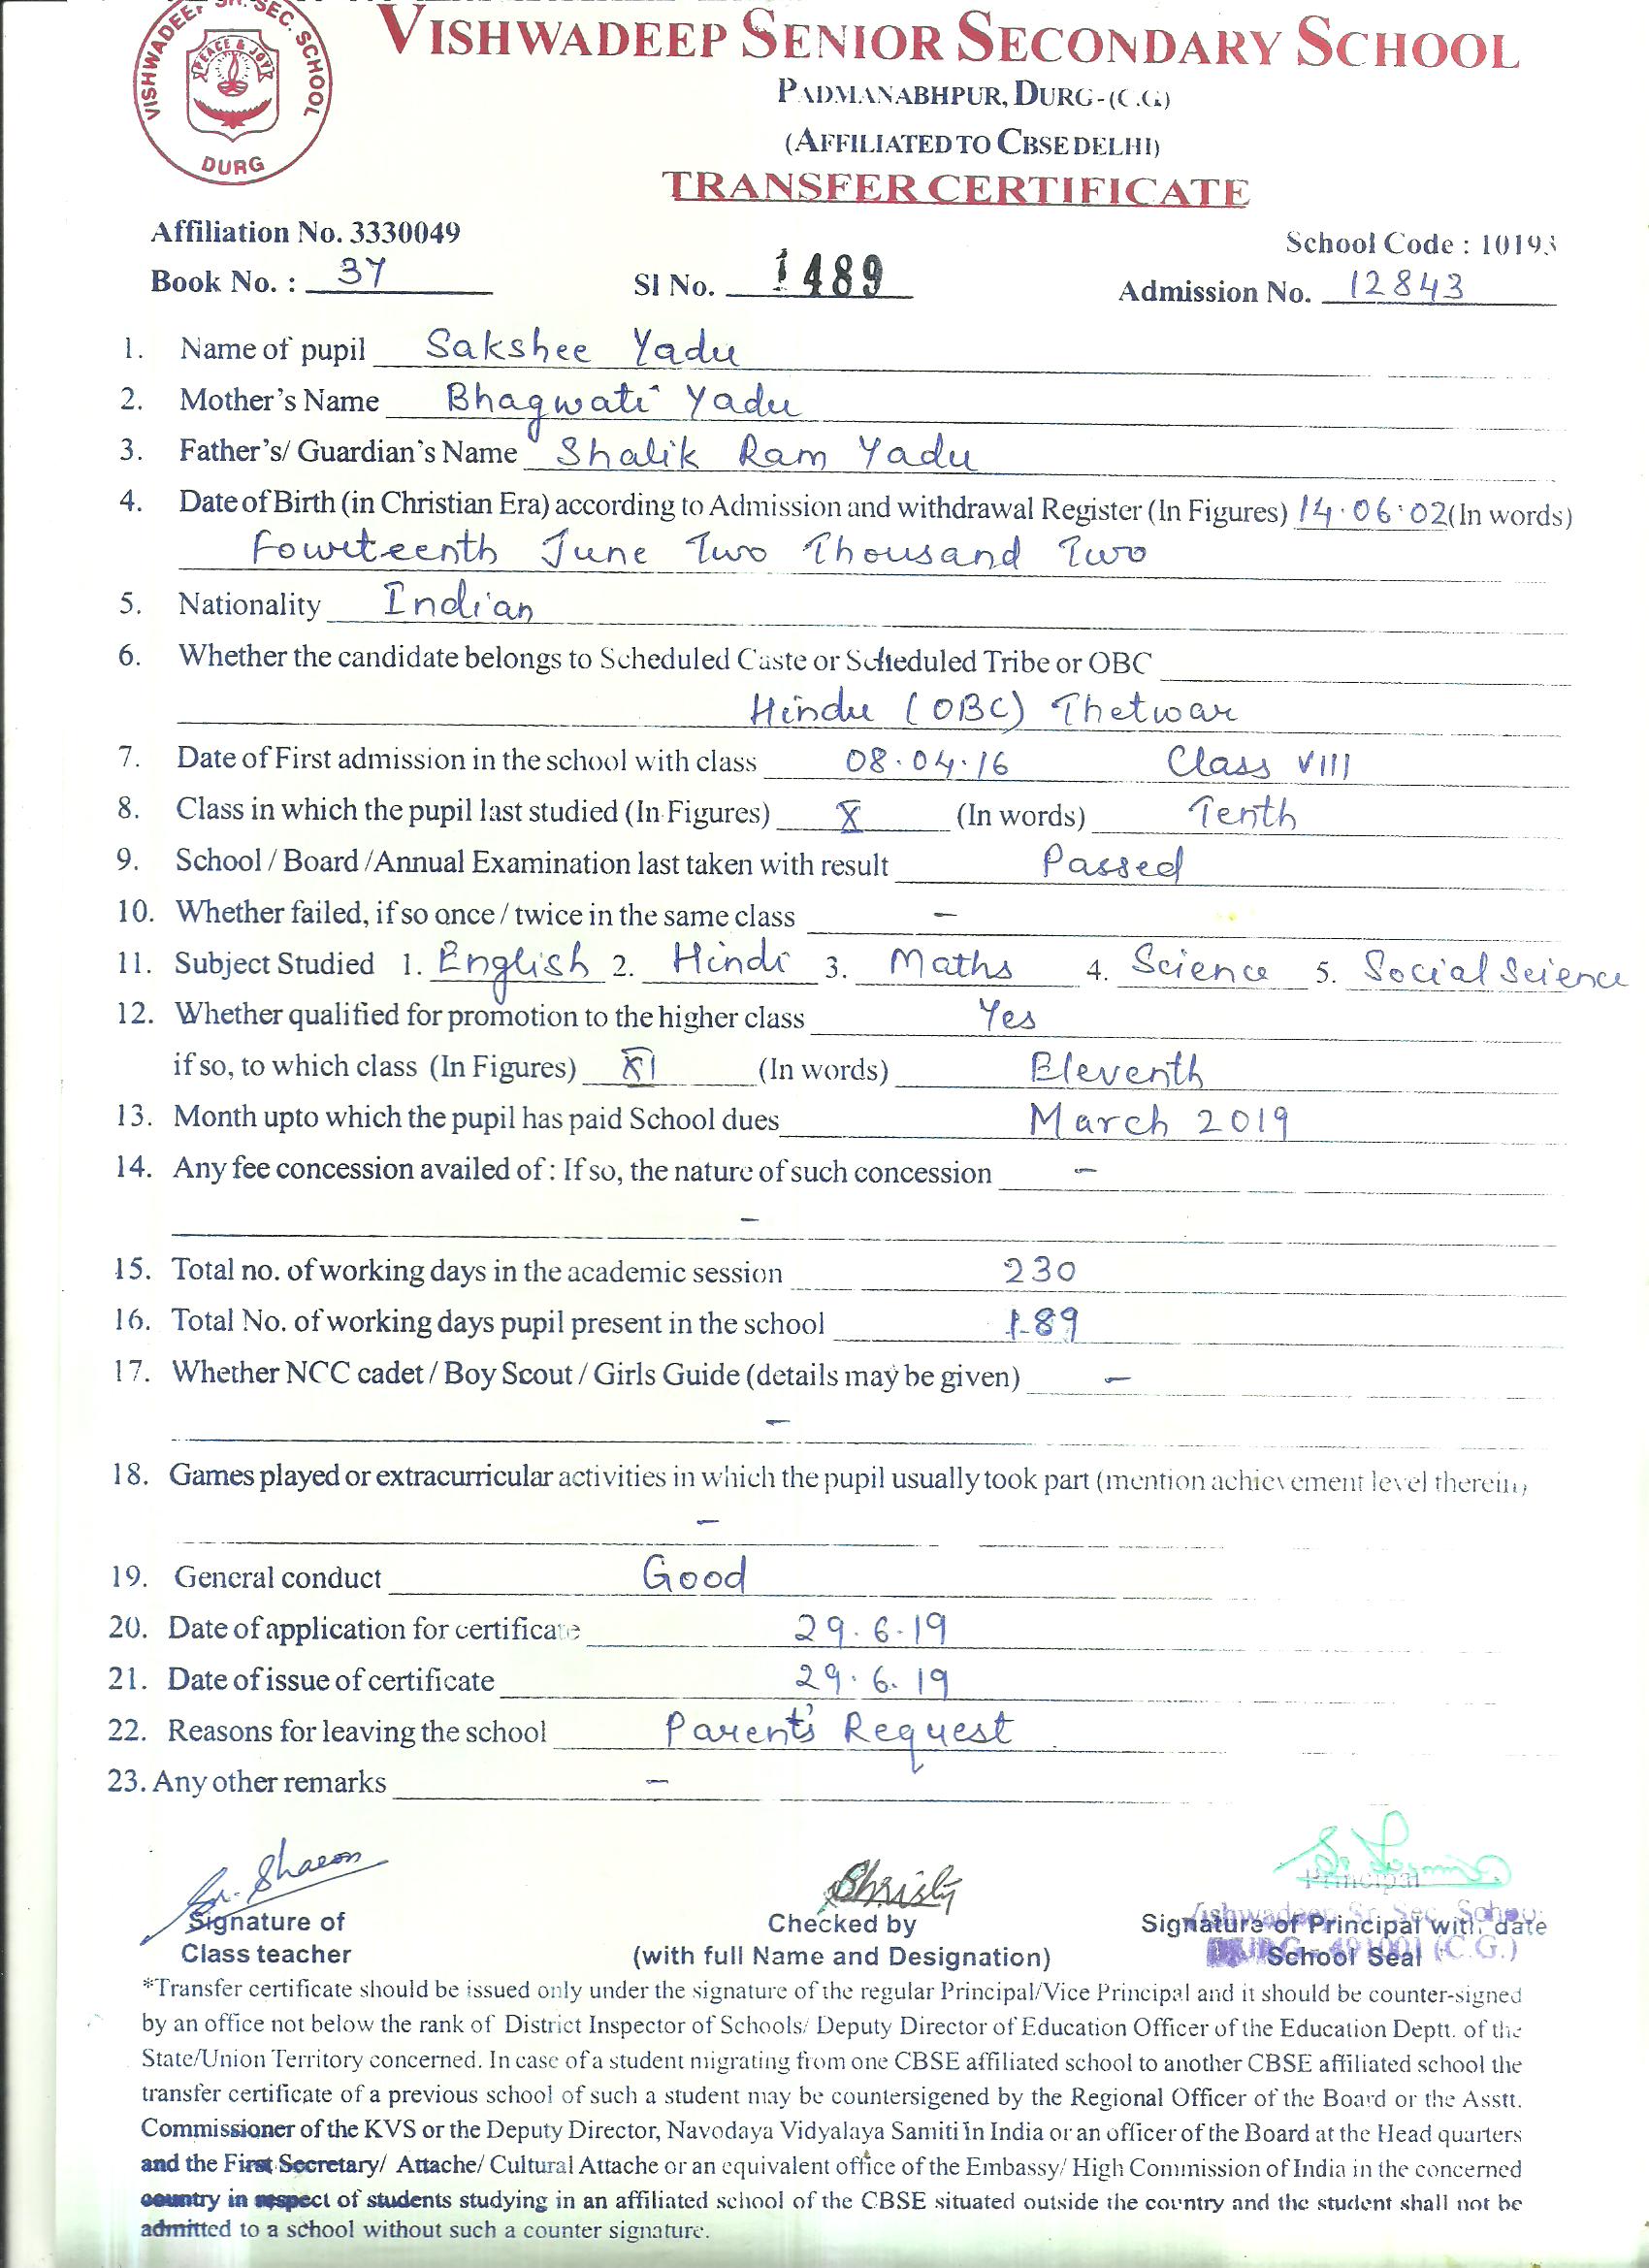 VISHWADEEP SR. SEC. SCHOOL
PEACE & JOY
DURG
VISHWADEEP SENIOR SECONDARY SCHOOL
PADMANABHPUR, DURG-(C.G.)
(AFFILIATED TO CBSE DELHI)
TRANSFER CERTIFICATE
Affiliation No. 3330049
School Code : 10193
Book No. : 37 Sl No. 1489 Admission No. 12843
1. Name of pupil Sakshee Yadu
2. Mother's Name Bhagwati Yadu
3. Father's/ Guardian's Name Shalik Ram Yadu
4. Date of Birth (in Christian Era) according to Admission and withdrawal Register (In Figures) 14.06.02 (In words)
Fourteenth June Two Thousand Two
5. Nationality Indian
6. Whether the candidate belongs to Scheduled Caste or Scheduled Tribe or OBC
Hindu (OBC) Thetwar
7. Date of First admission in the school with class 08.04.16 Class VIII
8. Class in which the pupil last studied (In Figures) X (In words) Tenth
9. School / Board /Annual Examination last taken with result Passed
10. Whether failed, if so once / twice in the same class –
11. Subject Studied 1. English 2. Hindi 3. Maths 4. Science 5. Social Science
12. Whether qualified for promotion to the higher class Yes
if so, to which class (In Figures) XI (In words) Eleventh
13. Month upto which the pupil has paid School dues March 2019
14. Any fee concession availed of : If so, the nature of such concession –
–
15. Total no. of working days in the academic session 230
16. Total No. of working days pupil present in the school 189
17. Whether NCC cadet / Boy Scout / Girls Guide (details may be given) –
–
18. Games played or extracurricular activities in which the pupil usually took part (mention achievement level therein)
–
19. General conduct Good
20. Date of application for certificate 29.6.19
21. Date of issue of certificate 29.6.19
22. Reasons for leaving the school Parent's Request
23. Any other remarks –
Sr. Sharon Christy
Principal
Vishwadeep Sr. Sec. School
DURG - 491001 (C.G.)
Signature of Checked by Signature of Principal with date
Class teacher (with full Name and Designation) School Seal
*Transfer certificate should be issued only under the signature of the regular Principal/Vice Principal and it should be counter-signed
by an office not below the rank of District Inspector of Schools/ Deputy Director of Education Officer of the Education Deptt. of the
State/Union Territory concerned. In case of a student migrating from one CBSE affiliated school to another CBSE affiliated school the
transfer certificate of a previous school of such a student may be countersigened by the Regional Officer of the Board or the Asstt.
Commissioner of the KVS or the Deputy Director, Navodaya Vidyalaya Samiti in India or an officer of the Board at the Head quarters
and the First Secretary/ Attache/ Cultural Attache or an equivalent office of the Embassy/ High Commission of India in the concerned
country in respect of students studying in an affiliated school of the CBSE situated outside the country and the student shall not be
admitted to a school without such a counter signature.